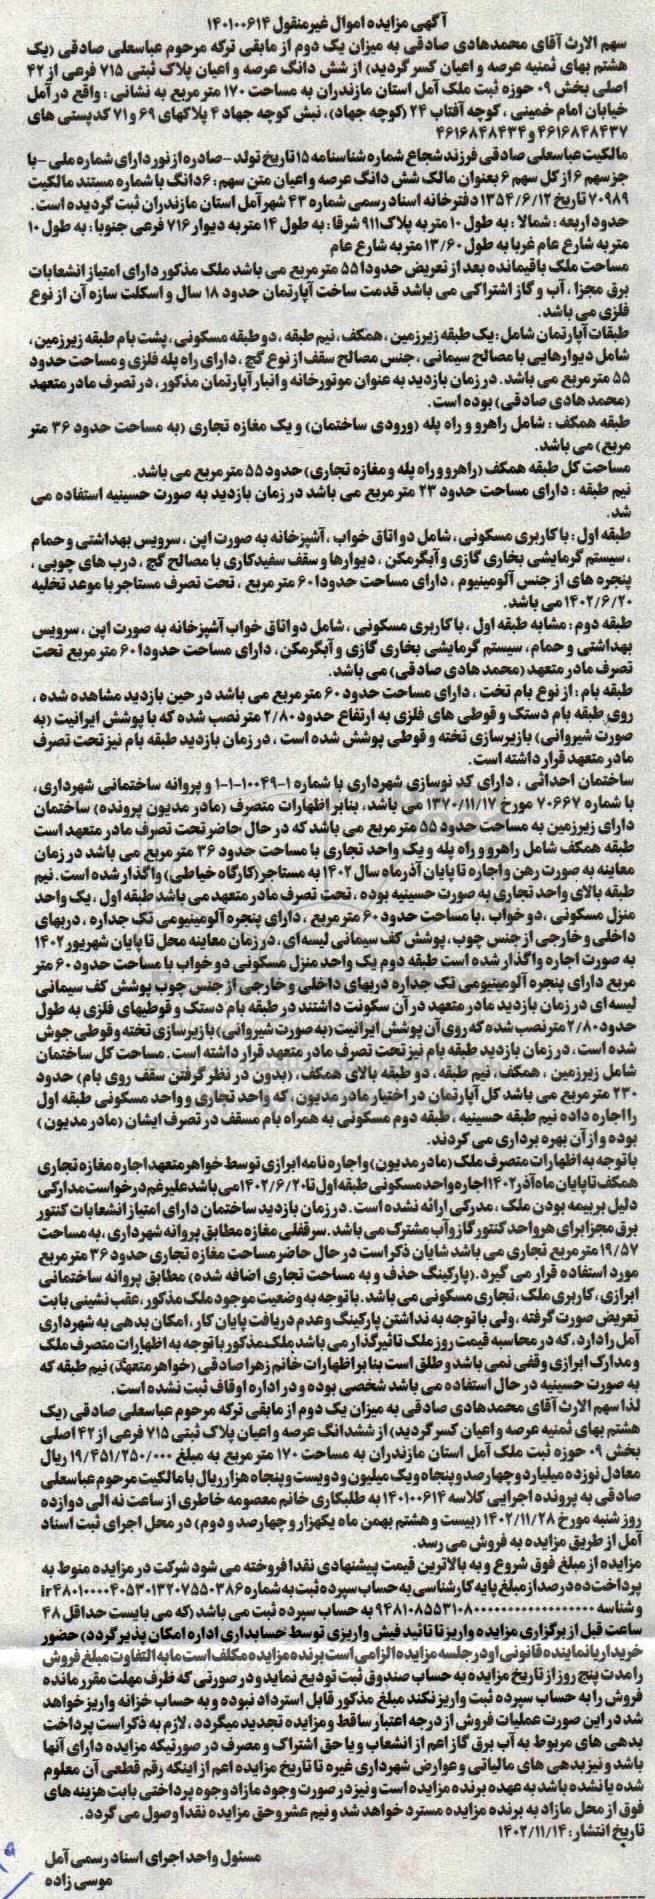 آگهی مزایده اموال غیرمنقول ۱۴۰۱۰۰۶۱۴
سهم الارث آقای محمدهادی صادقی به میزان یک دوم از مابقی ترکه مرحوم عباسعلی صادقی (یک
هشتم بهای ثمنیه عرصه و اعیان کسر گردید) از شش دانگ عرصه و اعیان پلاک ثبتی ۷۱۵ فرعی از ۴۲
اصلی بخش ۰۹ حوزه ثبت ملک آمل استان مازندران به مساحت ۱۷۰ متر مربع به نشانی : واقع در آمل
خیابان امام خمینی ، کوچه آفتاب ۲۴ (کوچه جهاد)، نبش کوچه جهاد ۴ پلاکهای ۶۹ و ۷۱ کدپستی های
۴۶۱۶۸۴۸۴۳۷ و ۴۶۱۶۸۴۸۴۳۴
مالکیت عباسعلی صادقی فرزند شجاع شماره شناسنامه ۱۵ تاریخ تولد - صادره از نور دارای شماره ملی - با
جز سهم ۶ از کل سهم ۶ بعنوان مالک شش دانگ عرصه و اعیان متن سهم : ۶دانگ با شماره مستند مالکیت
۷۰۹۸۹ تاریخ ۱۳۵۴/۶/۱۲ دفترخانه اسناد رسمی شماره ۴۳ شهر آمل استان مازندران ثبت گردیده است.
حدود اربعه : شمالا : به طول ۱۰ متر به پلاک ۹۱۱ شرقا : به طول ۱۴ متر به دیوار ۷۱۶ فرعی جنوبا : به طول ۱۰
متر به شارع عام غربا به طول ۱۳/۶۰ متر به شارع عام
مساحت ملک باقیمانده بعد از تعریض حدودا ۵۵ متر مربع می باشد ملک مذکور دارای امتیاز انشعابات
برق مجزا ، آب و گاز اشتراکی می باشد قدمت ساخت آپارتمان حدود ۱۸ سال و اسکلت سازه آن از نوع
فلزی می باشد.
طبقات آپارتمان شامل : یک طبقه زیرزمین ، همکف، نیم طبقه ، دو طبقه مسکونی، پشت بام طبقه زیرزمین،
شامل دیوارهایی با مصالح سیمانی ، جنس مصالح سقف از نوع گچ ، دارای راه پله فلزی و مساحت حدود
۵۵ متر مربع می باشد. در زمان بازدید به عنوان موتورخانه و انبار آپارتمان مذکور ، در تصرف مادر متعهد
(محمد هادی صادقی) بوده است.
طبقه همکف : شامل راهرو و راه پله (ورودی ساختمان) و یک مغازه تجاری (به مساحت حدود ۳۶ متر
مربع) می باشد.
مساحت کل طبقه همکف (راهرو و راه پله و مغازه تجاری) حدود ۵۵ متر مربع می باشد.
نیم طبقه : دارای مساحت حدود ۲۳ متر مربع می باشد در زمان بازدید به صورت حسینیه استفاده می
شد.
طبقه اول : با کاربری مسکونی ، شامل دو اتاق خواب ، آشپزخانه به صورت اپن ، سرویس بهداشتی و حمام
، سیستم گرمایشی بخاری گازی و آبگرمکن ، دیوارها و سقف سفیدکاری با مصالح گچ ، درب های چوبی ،
پنجره های از جنس آلومینیوم ، دارای مساحت حدودا ۶۰ متر مربع ، تحت تصرف مستاجر با موعد تخلیه
۱۴۰۲/۶/۲۰ می باشد.
طبقه دوم : مشابه طبقه اول ، با کاربری مسکونی ، شامل دو اتاق خواب آشپزخانه به صورت اپن ، سرویس
بهداشتی و حمام، سیستم گرمایشی بخاری گازی و آبگرمکن، دارای مساحت حدودا ۶۰ متر مربع تحت
تصرف مادر متعهد (محمد هادی صادقی) می باشد.
طبقه بام : از نوع بام تخت ، دارای مساحت حدود ۶۰ متر مربع می باشد در حین بازدید مشاهده شده ،
روی طبقه بام دستک و قوطی های فلزی به ارتفاع حدود ۲/۸۰ متر نصب شده که با پوشش ایرانیت (به
صورت شیروانی) بازیرسازی تخته و قوطی پوشش شده است ، در زمان بازدید طبقه بام نیز تحت تصرف
مادر متعهد قرار داشته است.
ساختمان احداثی ، دارای کد نوسازی شهرداری با شماره ۱-۱۰۰۴۹-۱-۱ و پروانه ساختمانی شهرداری،
با شماره ۷۰۶۶۷ مورخ ۱۳۷۰/۱۱/۱۷ می باشد، بنابر اظهارات متصرف (مادر مدیون پرونده) ساختمان
دارای زیرزمین به مساحت حدود ۵۵ متر مربع می باشد که در حال حاضر تحت تصرف مادر متعهد است
طبقه همکف شامل راهرو و راه پله و یک واحد تجاری با مساحت حدود ۳۶ متر مربع می باشد در زمان
معاینه به صورت رهن و اجاره تا پایان آذرماه سال ۱۴۰۲ به مستاجر (کارگاه خیاطی) واگذار شده است. نیم
طبقه بالای واحد تجاری به صورت حسینیه بوده ، تحت تصرف مادر متعهد می باشد طبقه اول ، یک واحد
منزل مسکونی ، دو خواب ، با مساحت حدود ۶۰ متر مربع ، دارای پنجره آلومینیومی تک جداره ، دربهای
داخلی و خارجی از جنس چوب، پوشش کف سیمانی لیسه ای، در زمان معاینه محل تا پایان شهریور ۱۴۰۲
به صورت اجاره واگذار شده است طبقه دوم یک واحد منزل مسکونی دو خواب با مساحت حدود ۶۰ متر
مربع دارای پنجره آلومینیومی تک جداره دربهای داخلی و خارجی از جنس چوب پوشش کف سیمانی
لیسه ای در زمان بازدید مادر متعهد در آن سکونت داشتند در طبقه بام دستک و قوطیهای فلزی به طول
حدود ۲/۸۰ متر نصب شده که روی آن پوشش ایرانیت (به صورت شیروانی) بازیرسازی تخته و قوطی جوش
شده است ، در زمان بازدید طبقه بام نیز تحت تصرف مادر متعهد قرار داشته است . مساحت کل ساختمان
شامل زیرزمین ، همکف، نیم طبقه، دو طبقه بالای همکف، (بدون در نظر گرفتن سقف روی بام) حدود
۲۳۰ متر مربع می باشد کل آپارتمان در اختیار مادر مدیون، که واحد تجاری و واحد مسکونی طبقه اول
را اجاره داده نیم طبقه حسینیه ، طبقه دوم مسکونی به همراه بام مسقف در تصرف ایشان (مادر مدیون)
بوده و از آن بهره برداری می کردند.
با توجه به اظهارات متصرف ملک (مادر مدیون) و اجاره نامه ابرازی توسط خواهر متعهد اجاره مغازه تجاری
همکف تا پایان ماه آذر ۱۴۰۲ اجاره واحد مسکونی طبقه اول تا ۱۴۰۲/۶/۲۰ می باشد علیرغم درخواست مدارکی
دلیل بر بیمه بودن ملک ، مدرکی ارائه نشده است . در زمان بازدید ساختمان دارای امتیاز انشعابات کنتور
برق مجزا برای هر واحد کنتور گاز و آب مشترک می باشد. سرقفلی مغازه مطابق پروانه شهرداری، به مساحت
۱۹/۵۷ متر مربع تجاری می باشد شایان ذکر است در حال حاضر مساحت مغازه تجاری حدود ۳۶ متر مربع
مورد استفاده قرار می گیرد. (پارکینگ حذف و به مساحت تجاری اضافه شده) مطابق پروانه ساختمانی
ابرازی ، کاربری ملک ، تجاری مسکونی می باشد. با توجه به وضعیت موجود ملک مذکور، عقب نشینی بابت
تعریض صورت گرفته ، ولی با توجه به نداشتن پارکینگ و عدم دریافت پایان کار ، امکان بدهی به شهرداری
آمل را دارد ، که در محاسبه قیمت روز ملک تاثیرگذار می باشد ملک مذکور با توجه به اظهارات متصرف ملک
و مدارک ابرازی وقفی نمی باشد و طلق است بنا بر اظهارات خانم زهرا صادقی (خواهر متعهد) نیم طبقه که
به صورت حسینیه در حال استفاده می باشد شخصی بوده و در اداره اوقاف ثبت نشده است .
لذا سهم الارث آقای محمدهادی صادقی به میزان یک دوم از مابقی ترکه مرحوم عباسعلی صادقی (یک
هشتم بهای ثمنیه عرصه و اعیان کسر گردید) از ششدانگ عرصه و اعیان پلاک ثبتی ۷۱۵ فرعی از ۴۲ اصلی
بخش ۰۹ حوزه ثبت ملک آمل استان مازندران به مساحت ۱۷۰ متر مربع به مبلغ ۱۹/۴۵۱/۲۵۰/۰۰۰ ریال
معادل نوزده میلیارد و چهارصد و پنجاه و یک میلیون و دویست و پنجاه هزار ریال با مالکیت مرحوم عباسعلی
صادقی به پرونده اجرایی کلاسه ۱۴۰۱۰۰۶۱۴ به طلبکاری خانم معصومه خاطری از ساعت نه الی دوازده
روز شنبه مورخ ۱۴۰۲/۱۱/۲۸ (بیست و هشتم بهمن ماه یکهزار و چهارصد و دوم) در محل اجرای ثبت اسناد
آمل از طریق مزایده به فروش می رسد.
مزایده از مبلغ فوق شروع و به بالاترین قیمت پیشنهادی نقدا فروخته می شود شرکت در مزایده منوط به
پرداخت ده درصد از مبلغ پایه کارشناسی به حساب سپرده ثبت به شماره
و شناسه به حساب سپرده ثبت می باشد (که می بایست حداقل ۴۸
ساعت قبل از برگزاری مزایده واریز تا تائید فیش واریزی توسط حسابداری اداره امکان پذیر گردد) حضور
خریدار یا نماینده قانونی او در جلسه مزایده الزامی است برنده مزایده مکلف است مابه التفاوت مبلغ فروش
را مدت پنج روز از تاریخ مزایده به حساب صندوق ثبت تودیع نماید و در صورتی که ظرف مهلت مقرر مانده
فروش را به حساب سپرده ثبت واریز نکند مبلغ مذکور قابل استرداد نبوده و به حساب خزانه واریز خواهد
شد در این صورت عملیات فروش از درجه اعتبار ساقط و مزایده تجدید میگردد ، لازم به ذکر است پرداخت
بدهی های مربوط به آب برق گاز اعم از انشعاب و یا حق اشتراک و مصرف در صورتیکه مزایده دارای آنها
باشد و نیز بدهی های مالیاتی و عوارض شهرداری غیره تا تاریخ مزایده اعم از اینکه رقم قطعی آن معلوم
شده یا نشده باشد به عهده برنده مزایده است و نیز در صورت وجود مازاد وجوه پرداختی بابت هزینه های
فوق از محل مازاد به برنده مزایده مسترد خواهد شد و نیم عشر و حق مزایده نقدا وصول می گردد.
تاریخ انتشار : ۱۴۰۲/۱۱/۱۴
مسئول واحد اجرای اسناد رسمی آمل
موسی زاده